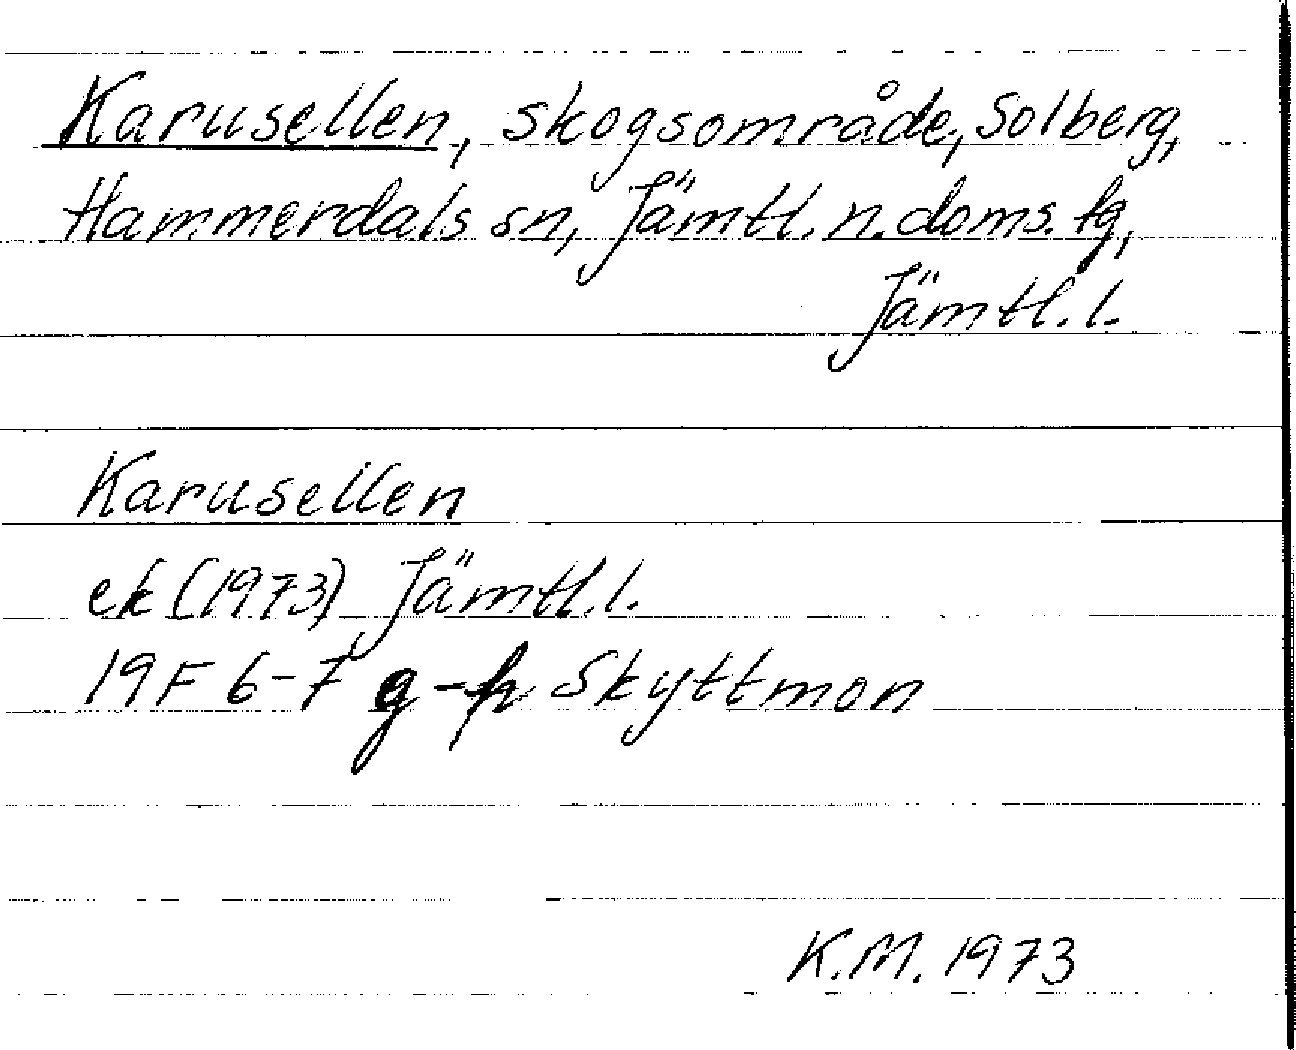 Karusellen, skogsområde, Solberg,
Hammerdals sn, Jämtl. n. doms. tg,
Jämtl. l.
Karusellen
ek (1973) Jämtl. l.
19F 6-7 g-h Skyttmon
K.M. 1973